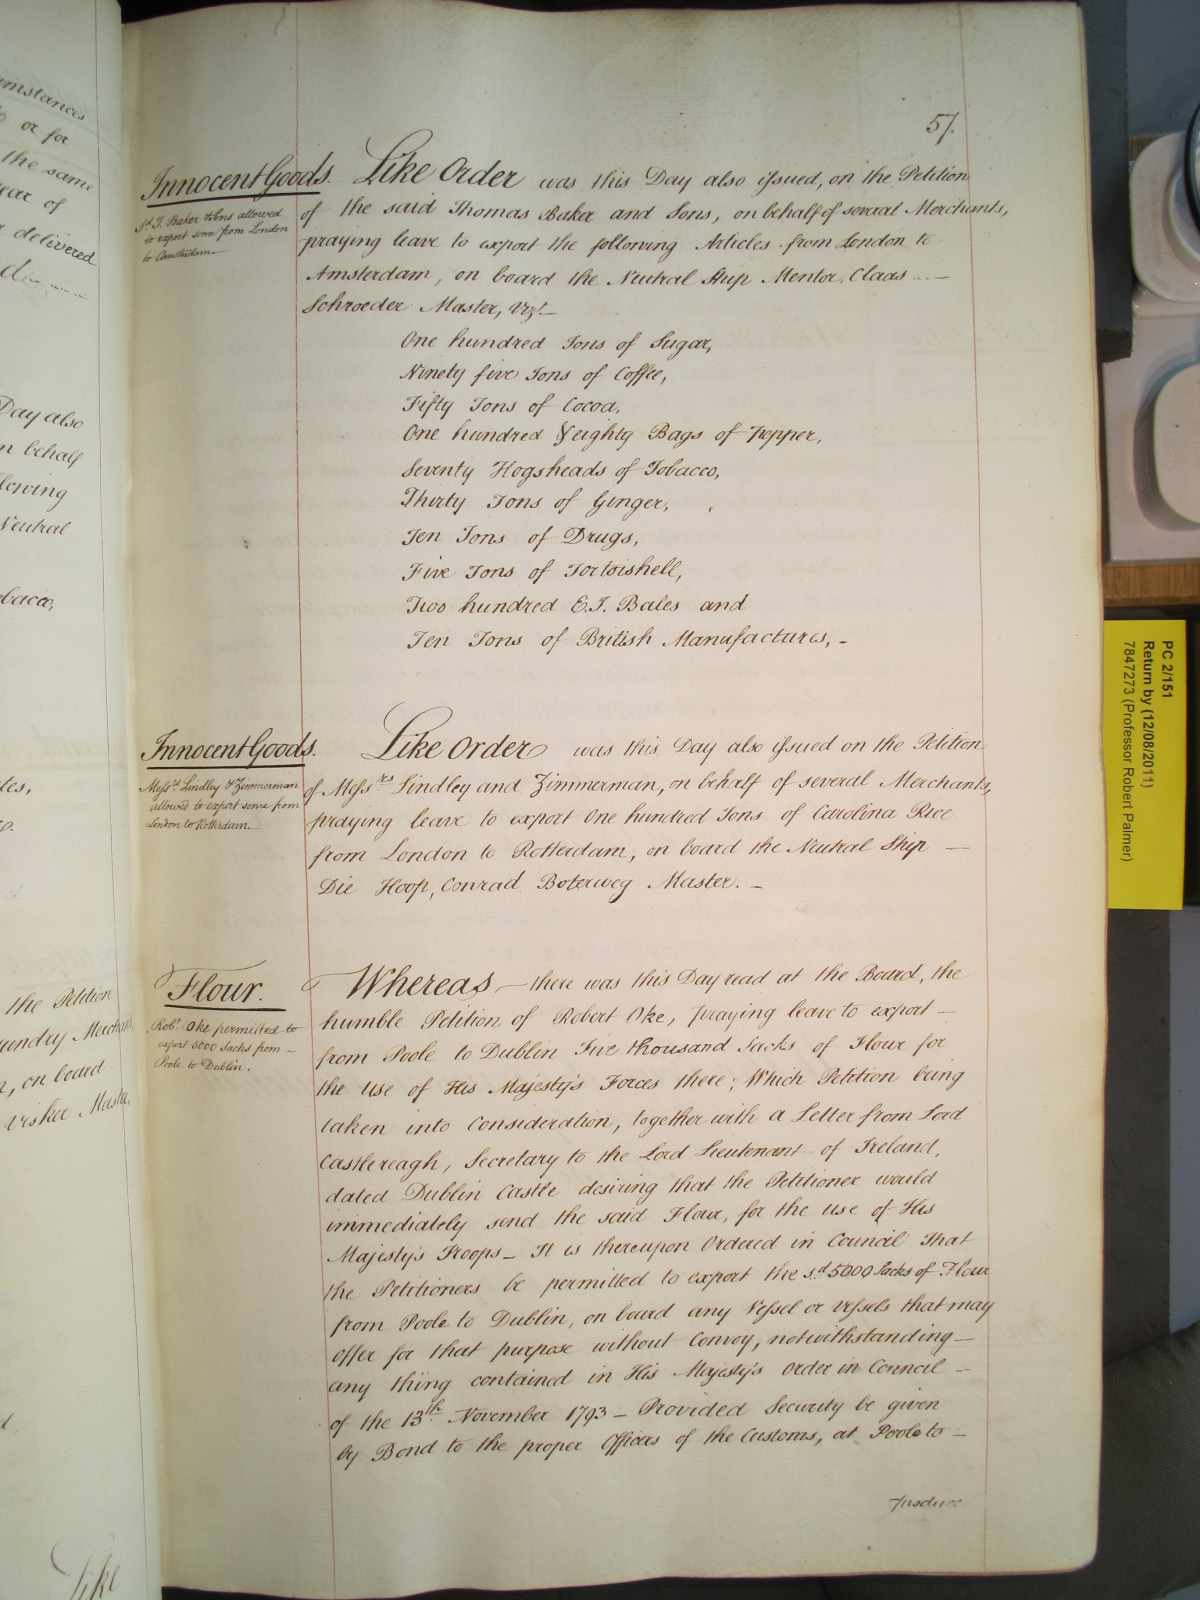 umstances
or for
the same
year of
delivered
Day also
n behalf
llowing
Neutral
obacco,
the Petition
undry Merchants,
n, on board
Visker Master,
Like
57.
Innocent Goods.
sd. T. Baker & Sons allowed
to export some from London
to Amsterdam
Like Order was this Day also issued, on the Petition
of the said Thomas Baker and Sons, on behalf of several Merchants,
praying leave to export the following Articles from London to
Amsterdam, on board the Neutral Ship Mentor, Claas
Schroeder Master, Vizt.
One hundred Tons of Sugar,
Ninety five Tons of Coffee,
Fifty Tons of Cocoa,
One hundred & eighty Bags of Pepper,
Seventy Hogsheads of Tobacco,
Thirty Tons of Ginger,
Ten Tons of Drugs,
Five Tons of Tortoishell,
Two hundred E.I. Bales and
Ten Tons of British Manufactures, -
Innocent Goods.
Messrs. Lindley & Zimmerman
allowed to export some from
London to Rotterdam
Like Order was this Day also issued on the Petition
of Messrs Lindley and Zimmerman, on behalf of several Merchants,
praying leave to export One hundred Tons of Carolina Rice
from London to Rotterdam, on board the Neutral Ship —
Die Hoop, Conrad Boterweg Master. -
Flour.
Robt. Oke permitted to
export 5000 Sacks from —
Poole to Dublin.
Whereas — there was this Day read at the Board, the
humble Petition of Robert Oke, praying leave to export —
from Poole to Dublin Five thousand Sacks of Flour for
the use of His Majesty's Forces there; Which Petition being
taken into Consideration, together with a Letter from Lord
Castlereagh, Secretary to the Lord Lieutenant of Ireland,
dated Dublin Castle desiring that the Petitioner would
immediately send the said Flour, for the use of His
Majesty's Troops — It is thereupon Ordered in Council That
the Petitioners be permitted to export the sd. 5000 Sacks of Flour
from Poole to Dublin, on board any Vessel or Vessels that may
offer for that purpose without Convoy, notwithstanding —
any thing contained in His Majesty's Order in Council —
of the 13th. November 1793 — Provided Security be given
by Bond to the proper Officers of the Customs, at Poole to —
produce
PC 2/151
Return by (12/08/2011)
7847273 (Professor Robert Palmer)